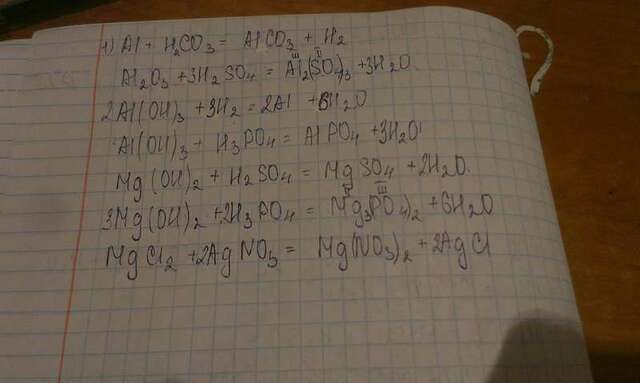 1) Al + H2CO3 = AlCO3 + H2
Al2O3 + 3H2SO4 = Al2(SO4)3 + 3H2O
2Al(OH)3 + 3H2 = 2Al + 6H2O
Al(OH)3 + H3PO4 = AlPO4 + 3H2O
Mg(OH)2 + H2SO4 = MgSO4 + 2H2O.
3Mg(OH)2 + 2H3PO4 = Mg3(PO4)2 + 6H2O
MgCl2 + 2AgNO3 = Mg(NO3)2 + 2AgCl